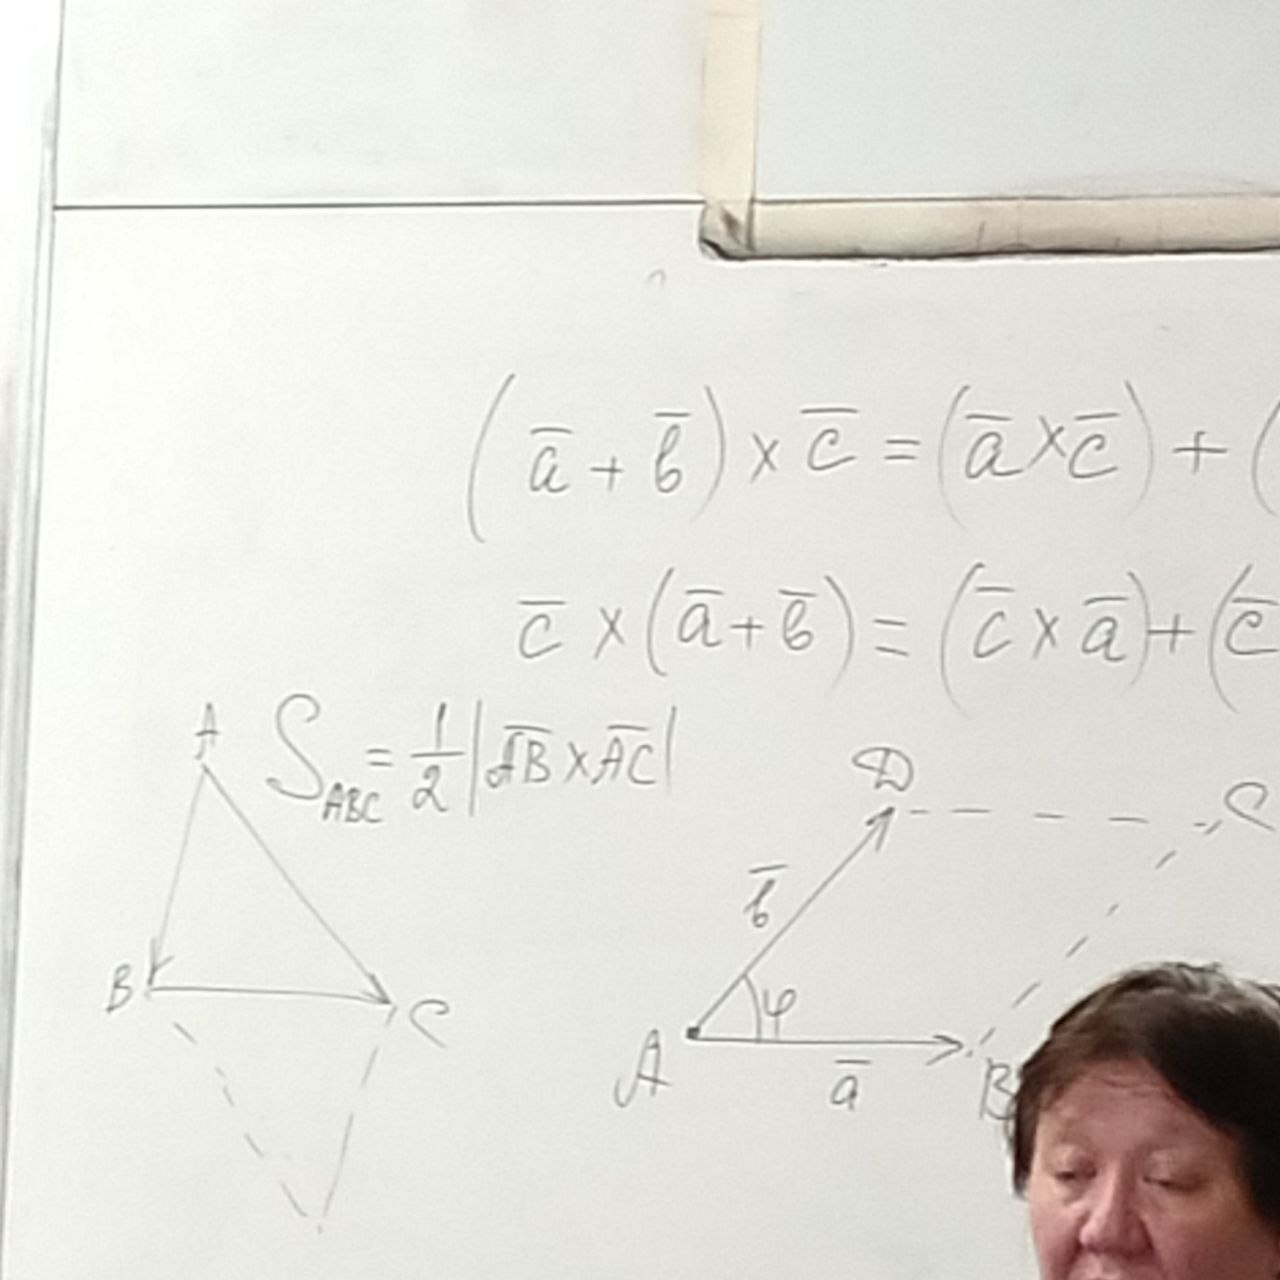 (a̅ + b̅) × c̅ = (a̅ × c̅) + (
c̅ × (a̅ + b̅) = (c̅ × a̅) + (c̅
A
S_ABC = 1/2 |A̅B̅ × A̅C̅|
B
C
D
C
b̅
φ
A
a̅
B